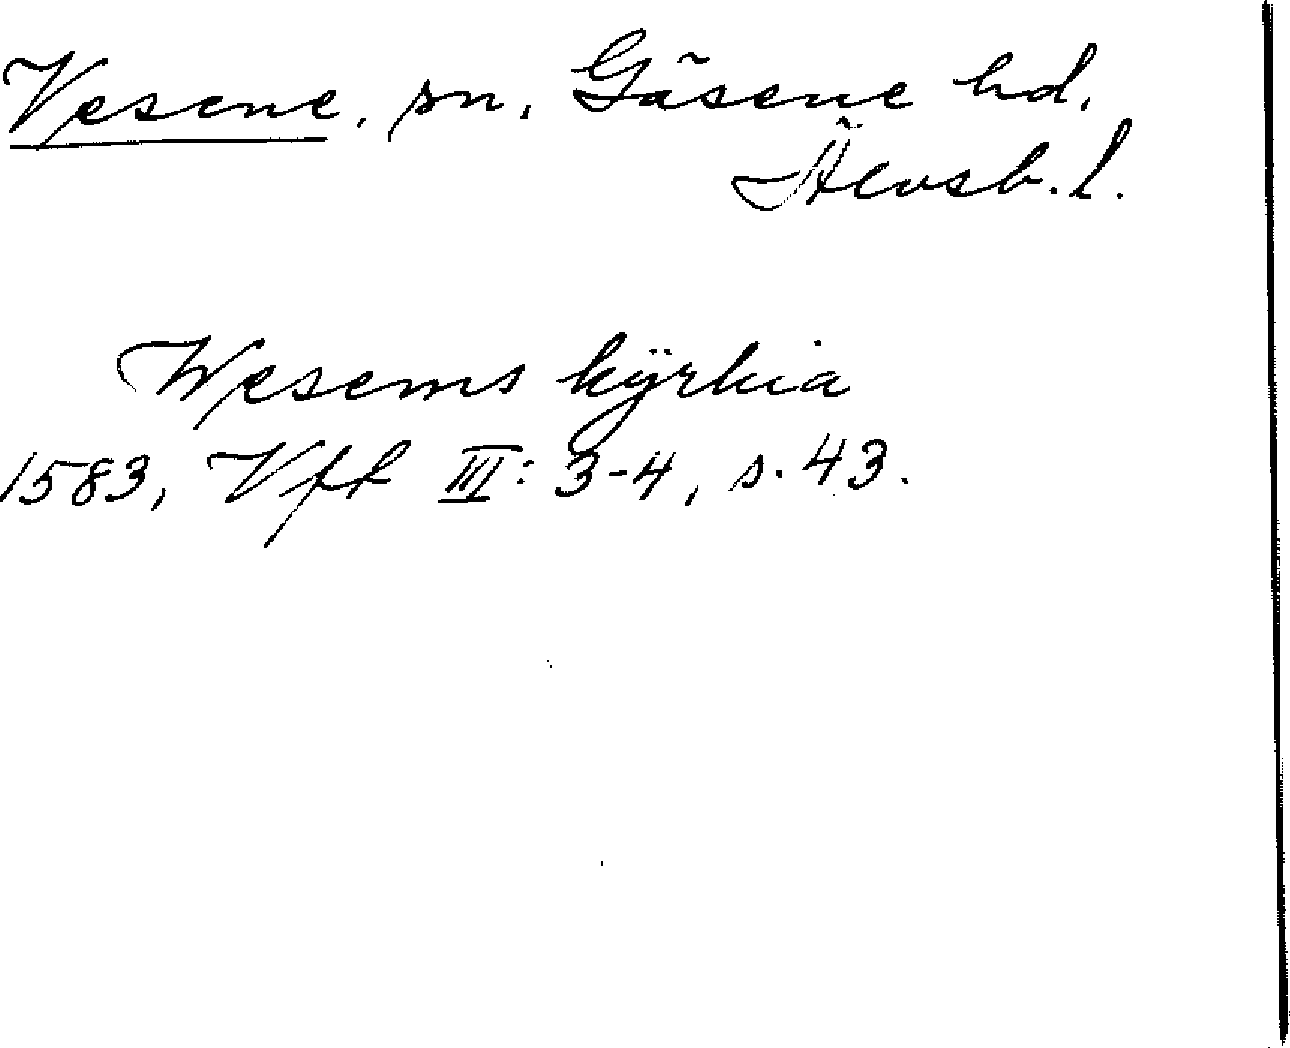 Vesene, sn, Gäsene hd.
Älvsb. l.
Wesems kÿrkia
1583, Vff III: 3-4, s. 43.